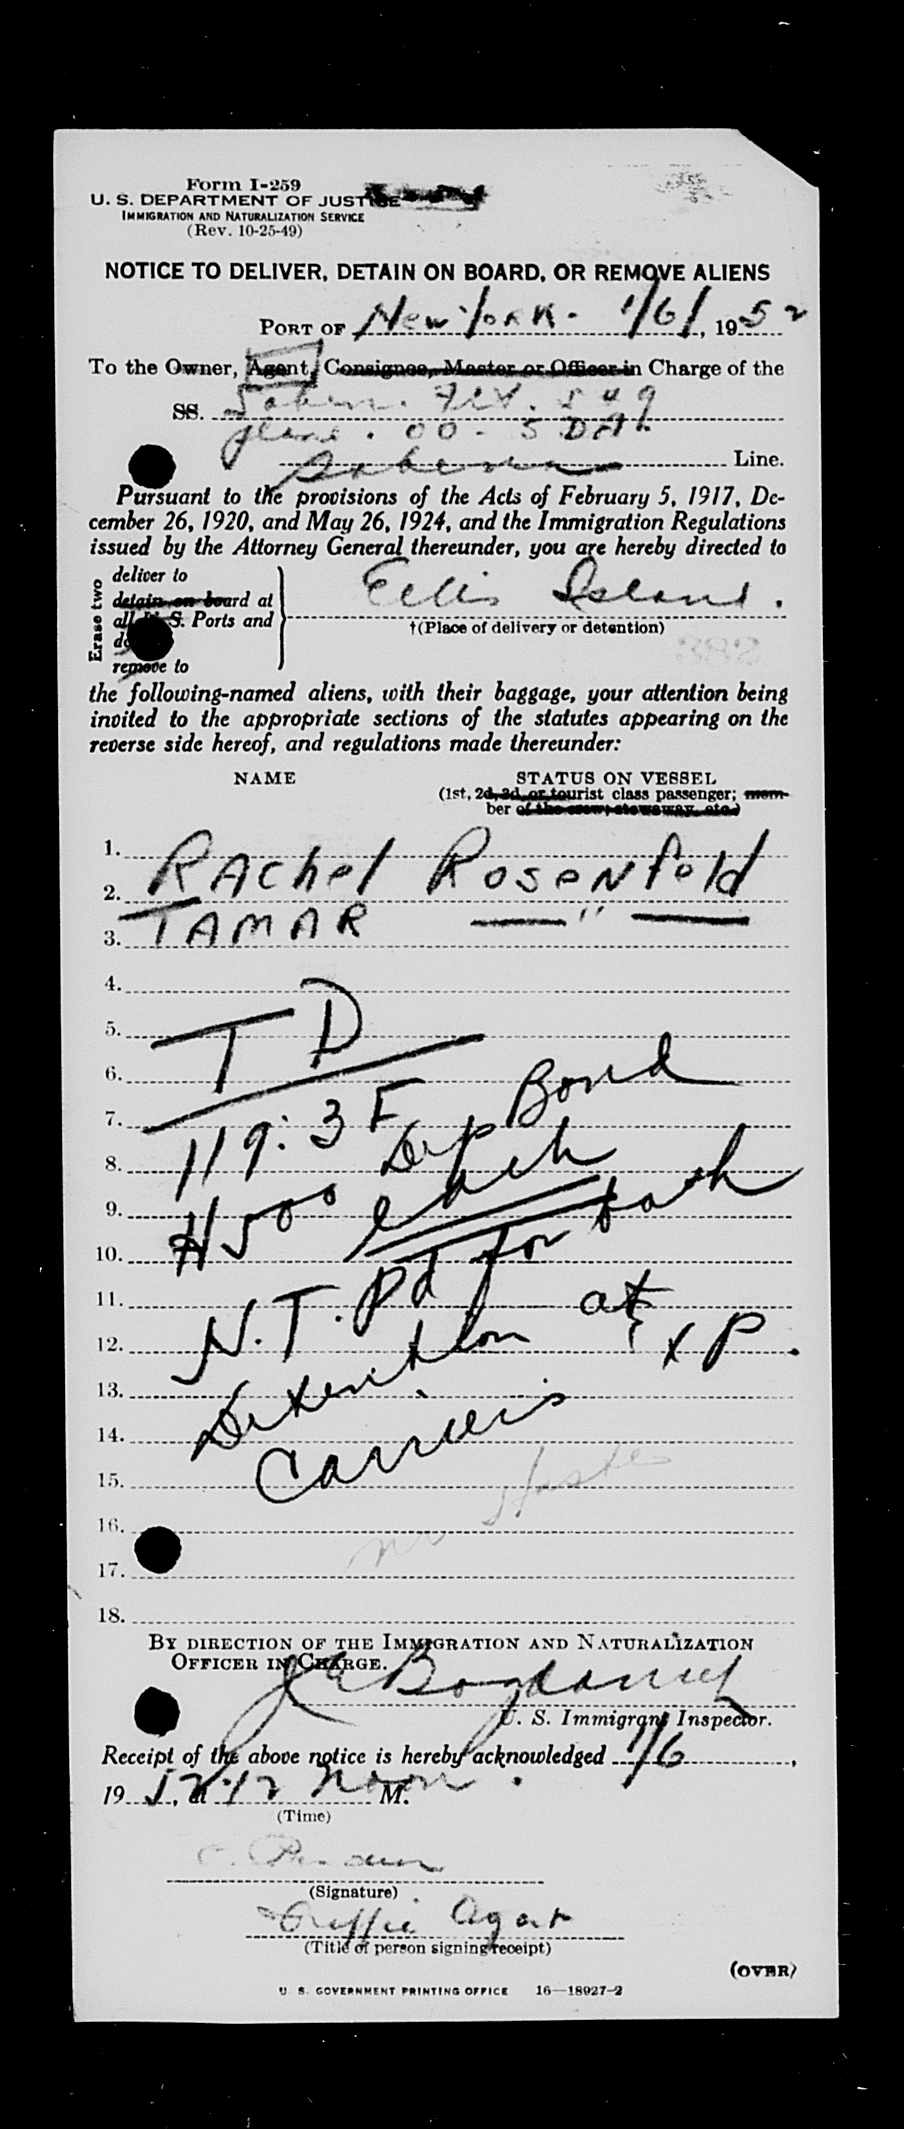 Form I-259
U. S. DEPARTMENT OF JUSTICE
IMMIGRATION AND NATURALIZATION SERVICE
(Rev. 10-25-49)
NOTICE TO DELIVER, DETAIN ON BOARD, OR REMOVE ALIENS
PORT OF New York. 1/6/, 1952
To the Owner, Agent, Consignee, Master or Officer in Charge of the
SS. Saben. Flt. 549
00-SDA.
Sabena Line.
Pursuant to the provisions of the Acts of February 5, 1917, De-
cember 26, 1920, and May 26, 1924, and the Immigration Regulations
issued by the Attorney General thereunder, you are hereby directed to
Erase two
deliver to
detain on board at
all U. S. Ports and
remove to
Ellis Island.
†(Place of delivery or detention)
the following-named aliens, with their baggage, your attention being
invited to the appropriate sections of the statutes appearing on the
reverse side hereof, and regulations made thereunder:
NAME STATUS ON VESSEL
(1st, 2d, 3d, or tourist class passenger; mem-
ber of the crew; stowaway, etc.)
1.
2. RAchel Rosenfeld
3. TAMAR — " —
4.
5. T D
6.
7. 119:3F Bond
8. Dep
9. $500 each
10. for both
11. N.T. Pd
12. Detention at XP.
13.
14. Carriers
15.
16.
17.
18.
BY DIRECTION OF THE IMMIGRATION AND NATURALIZATION
OFFICER IN CHARGE.
U. S. Immigrant Inspector.
Receipt of the above notice is hereby acknowledged 1/6,
1952, at 12 noon. M.
(Time)
(Signature)
Traffic Agent
(Title of person signing receipt)
(OVER)
U. S. GOVERNMENT PRINTING OFFICE 16—18927-2